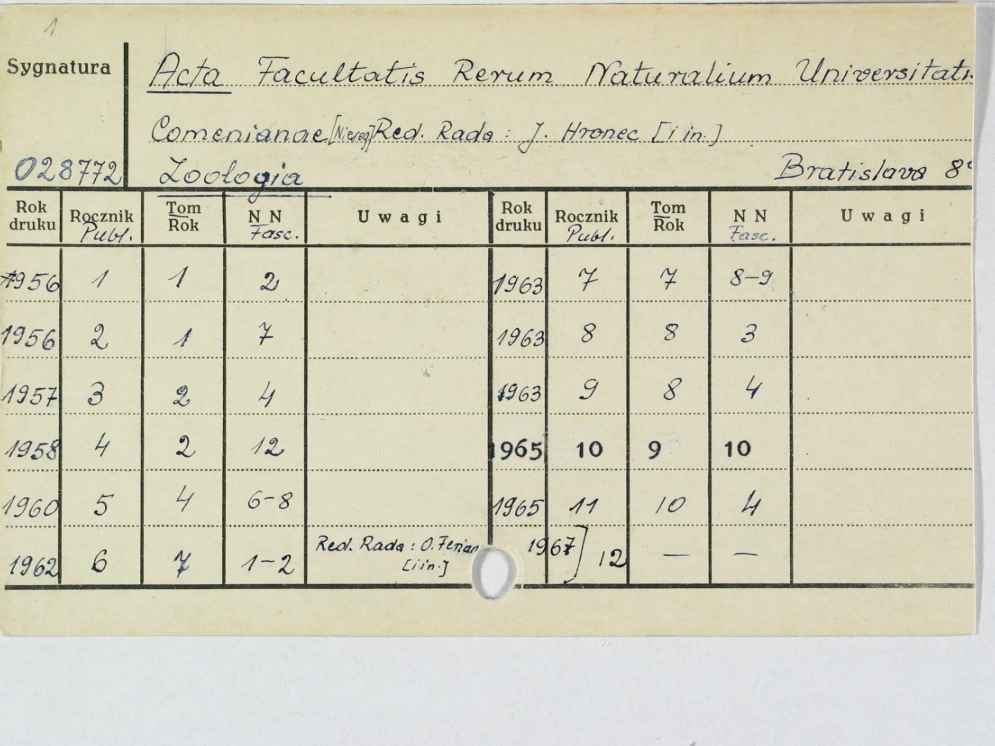 1
Sygnatura
Acta Facultatis Rerum Naturalium Universitati
Comenianae Red. Rada : J. Hronec [i in.]
028772 Zoologia Bratislava 8°
Rok druku Rocznik Publ. Tom Rok N N Fasc. Uwagi Rok druku Rocznik Publ. Tom Rok N N Fasc. Uwagi
1956 1 1 2 1963 7 7 8-9
1956 2 1 7 1963 8 8 3
1957 3 2 4 1963 9 8 4
1958 4 2 12 1965 10 9 10
1960 5 4 6-8 1965 11 10 4
1962 6 7 1-2 Red. Rada : O. Ferian [i in.] 1967] 12 — —